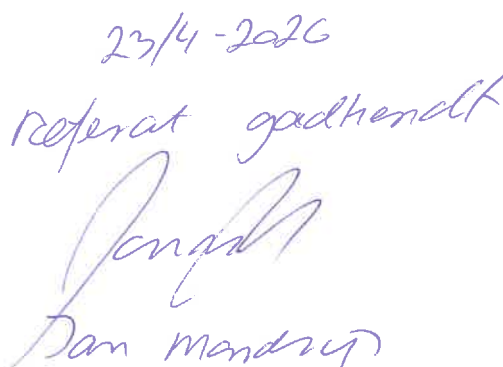 23/4-2026
Referat godkendt
Dan Mandrup